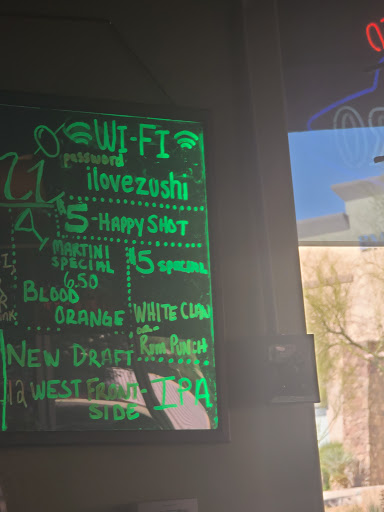 WI-FI
password
ilovezushi
$5-HAPPY SHOT
MARTINI
SPECIAL
6.50
BLOOD
ORANGE
$5 SPECIAL
WHITE CLAW
or
RUM PUNCH
NEW DRAFT
WEST FRONT-IPA
SIDE